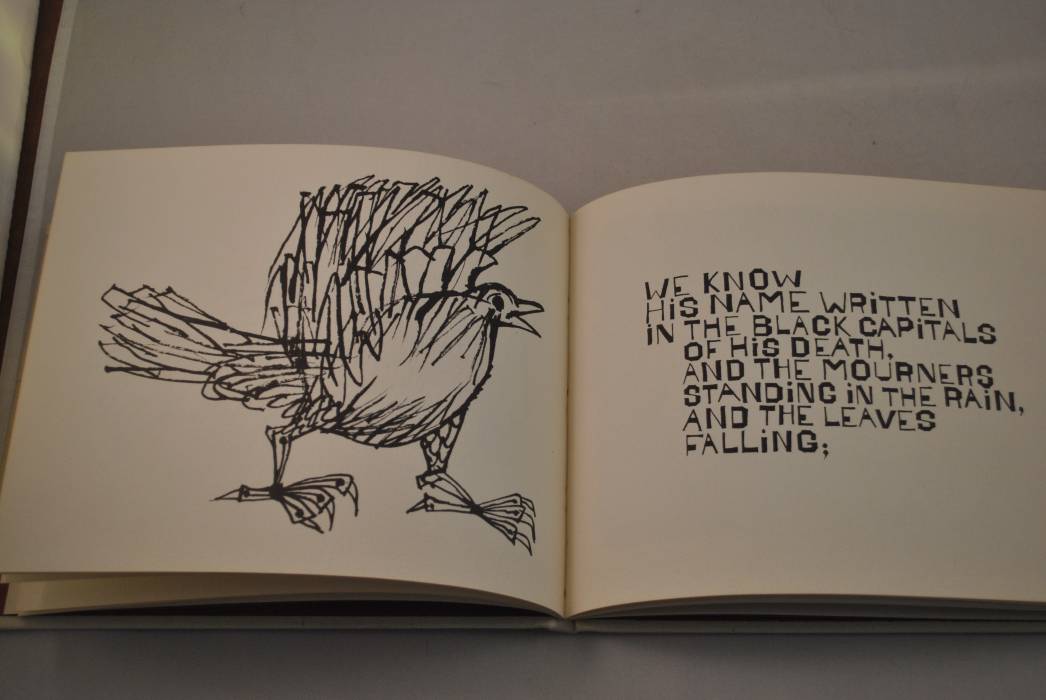 WE KNOW
HiS NAME WRiTTEN
iN THE BLACK CAPiTALS
OF HiS DEATH,
AND THE MOURNERS
STANDiNG iN THE RAiN,
AND THE LEAVES
FALLiNG;